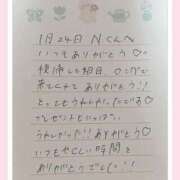 1月24日 Nくんへ
いつもありがとう♡
復帰した初日
来てくれてありがとう!!
とってもうれしかった
プレゼントも
うれしかった!! ありがとう♡
いつもやさしい時間を
ありがとう